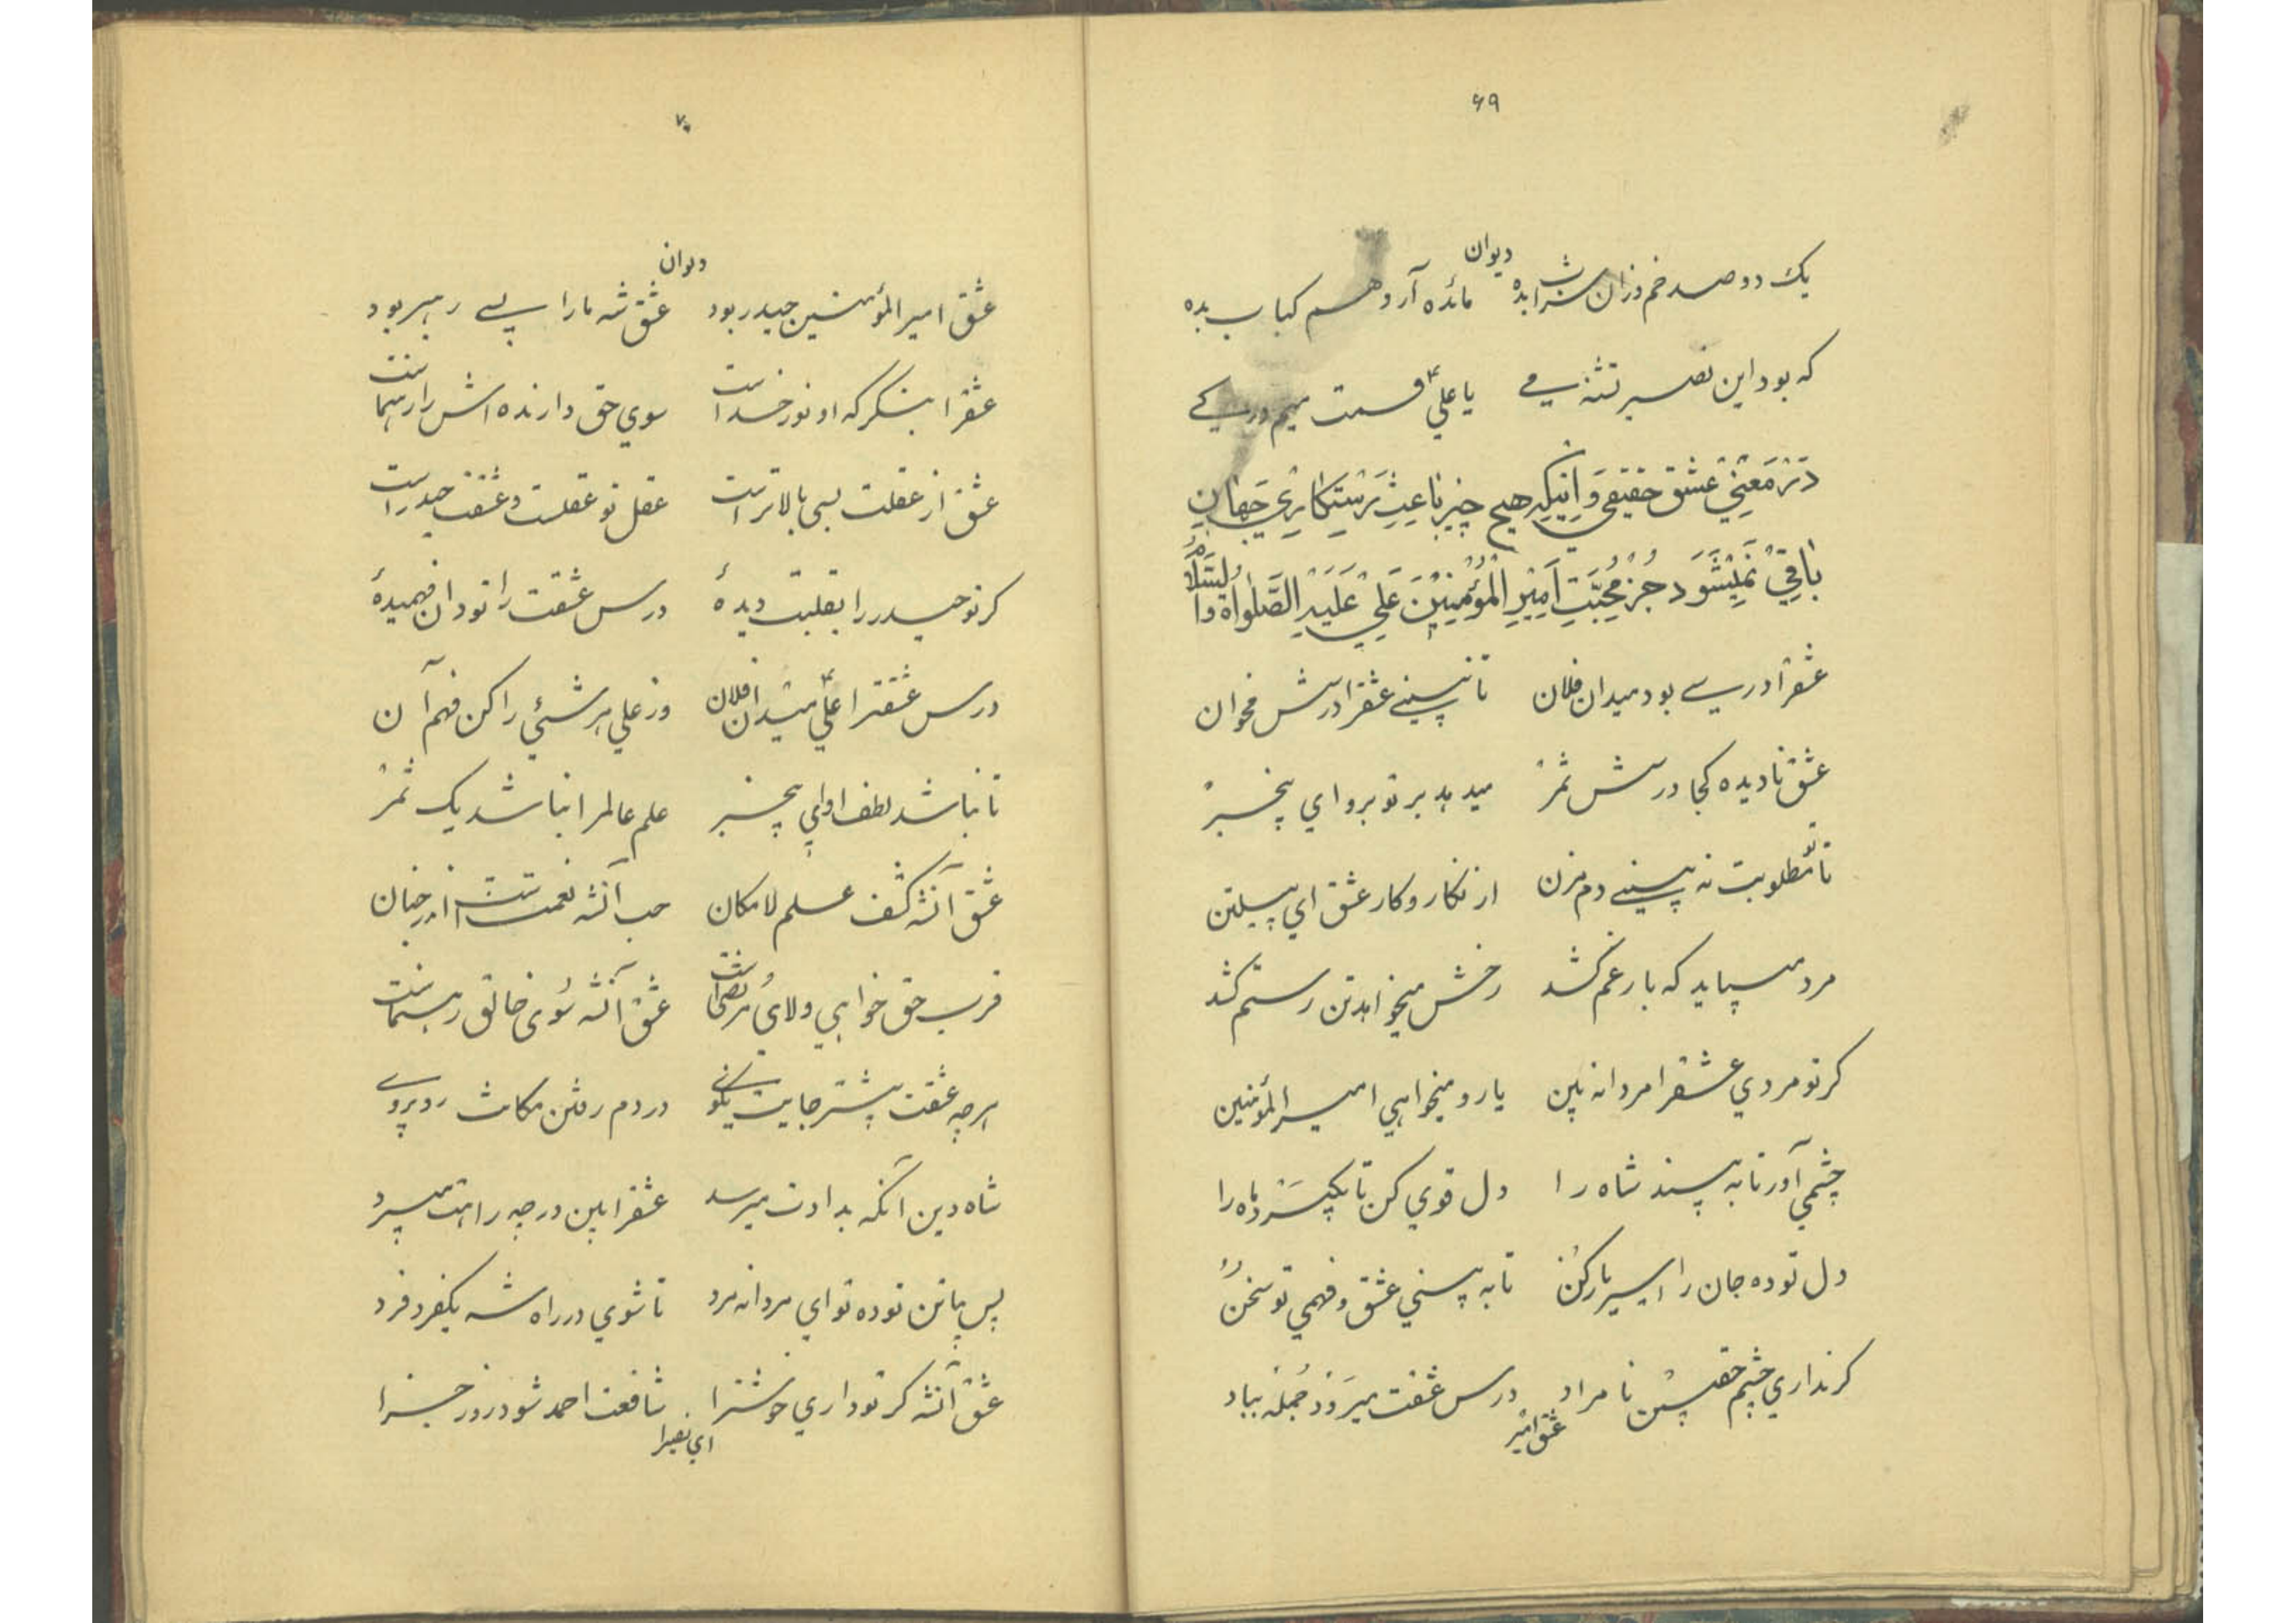 ۶۹
دیوان
یک دو صد خم وزان شرابده مائده آر و هم کباب بده
که بود این نصیر تشنه می یا علی قسمت میم در کی
در معنی عشق حقیقی و اینکه هیچ چیز باعث رستکاری جهان
باقی نمیشود جز محبت امیر المؤمنین علی علیه الصلواة و السلام
عشقرا درسی بود میدان فلان تا نبینی عشقرا درسش مخوان
عشق نادیده کجا درسش ثمر میدهد بر تو برو ای بیخبر
تا تو مطلوبت نه بینی دم مزن از نکار و کار عشق ای پیلتن
مرد میباید که بار غم کشد رخش میخواهد تن رستم کشد
کر تو مردی عشقرا مردانه بین یار و میخواهی امیر المؤمنین
چشمی آور تا به بیند شاه را دل قوی کن تا بگیرد ماه را
دل تو ده جان را اسیر یار کن تا به بینی عشق و فهمی تو سخن
کر نداری چشم حقبین نامراد درس عشقت میرود جمله بباد
عشق امیر
۷۰
دیوان
عشق امیر المؤمنین حیدر بود عشق شه ما را بسی رهبر بود
عشقرا بنکر که او نور خداست سوی حق دارنده اش را رهنماست
عشق از عقلت بسی بالاتر است عقل تو عقلست و عشقت حیدر است
کر تو حیدر را بقلبت دیدهٔ درس عشقت را تو دان فهمیدهٔ
درس عشقترا علی میدان فلان وز علی هر شیئی را کن فهم آن
تا نباشد لطف او ای بیخبر علم عالمرا نباشد یک ثمر
عشق آنشه کشف علم لامکان حب آنشه نعمتست اندر جنان
قرب حق خواهی ولای مرتضاست عشق آنشه سوی خالق رهنماست
هر چه عشقت بیشتر جایت نکوی در دم رفتن مکانت روبروی
شاه دین آنکه بدادت میرسد عشقرا بین در چه راهت میبرد
پس بیا تن تو ده تو ای مردانه مرد تا شوی در راه شه یکفرد فرد
عشق آنشه کر تو داری خوشترا شافعت احمد شود روز جزا
ای نصیرا